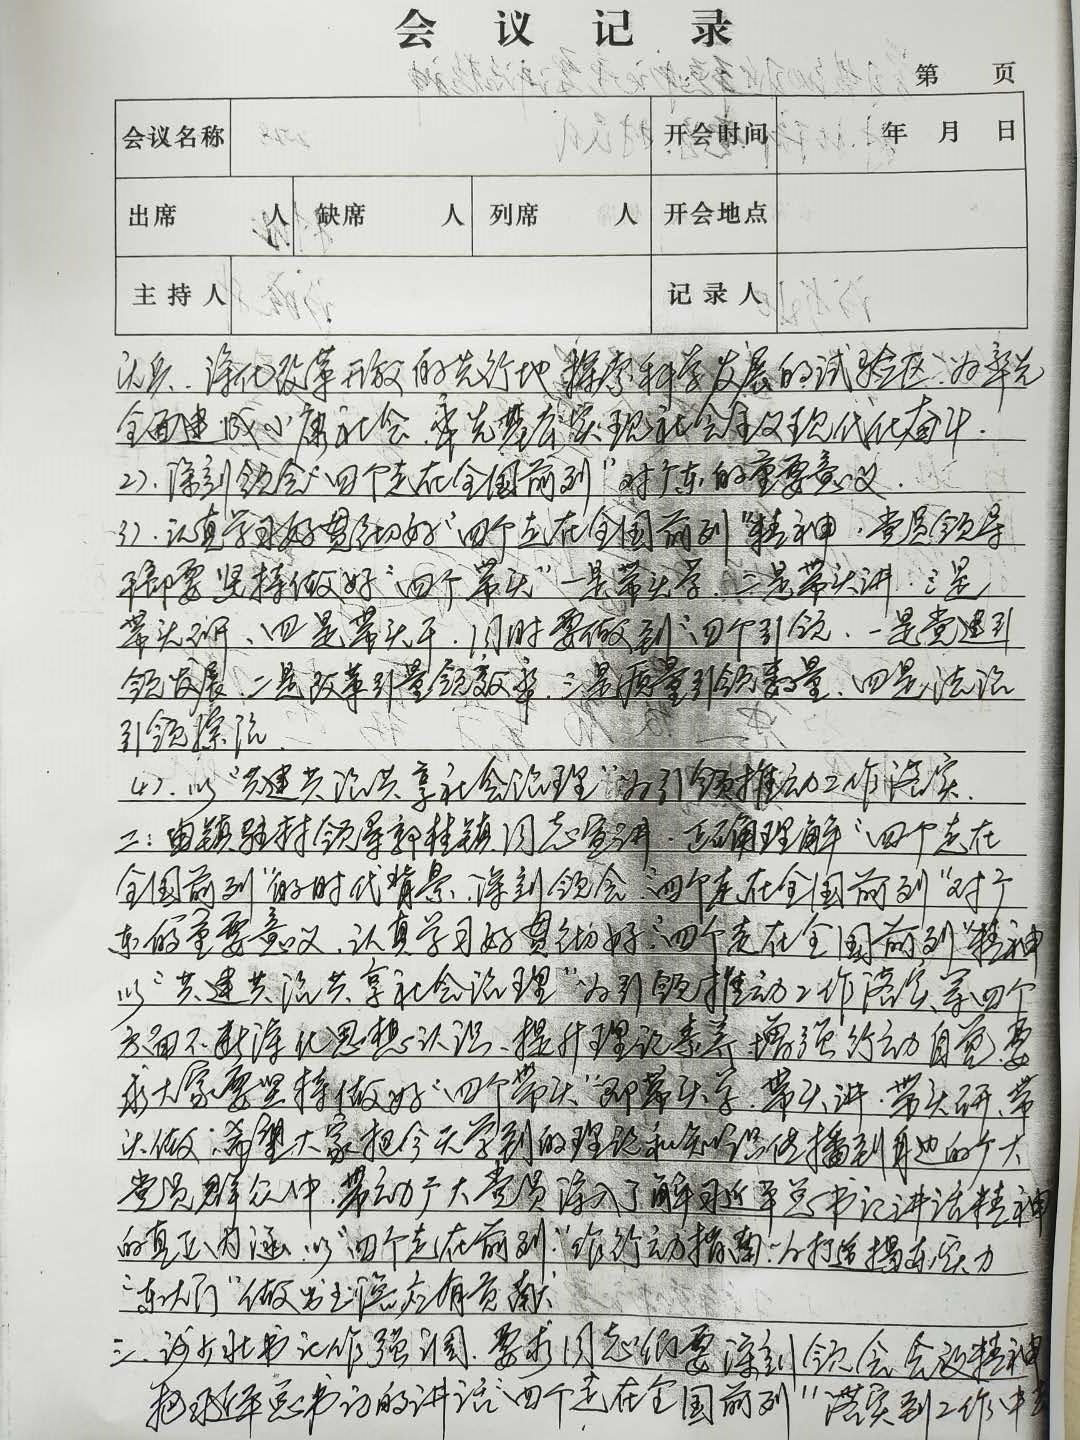 会议记录
第 页
会议名称 开会时间 年 月 日
出席 人 缺席 人 列席 人 开会地点
主持人 记录人
深化改革开放的先行地、探索科学发展的试验区、为率先
全面建成小康社会、率先基本实现社会主义现代化奋斗.
2).深刻领会“四个走在全国前列”对广东的重要意义.
3).认真学习好贯彻好“四个走在全国前列”精神.党员领导
干部要坚持做好“四个带头”一是带头学、二是带头讲、三是
带头研、四是带头干.同时要做到“四个引领、一是党建引
领发展、二是改革引量领效率、三是质量引领数量、四是法治
引领综治.
4).以“共建共治共享社会治理”为引领推动工作落实.
二:由镇驻村领导郭桂镇同志宣讲.正确理解“四个走在
全国前列”的时代背景、深刻领会“四个走在全国前列”对广
东的重要意义、认真学习好贯彻好“四个走在全国前列”精神
以“共建共治共享社会治理”为引领推动工作落实等四个
方面不断深化思想认识、提升理论素养、增强行动自觉,要
求大家要坚持做好“四个带头”即带头学、带头讲、带头研、带
头做;希望大家把今天学到的理论和知识传播到身边的广大
党员群众中、带动广大党员深入了解习近平总书记讲话精神
的真正内涵、以“四个走在前列”作行动指南、为打造揭东实力
“东大门”做出应有贡献
三、书记作强调、要求同志们要深刻领会会议精神
把习近平总书记的讲话“四个走在全国前列”落实到工作中去